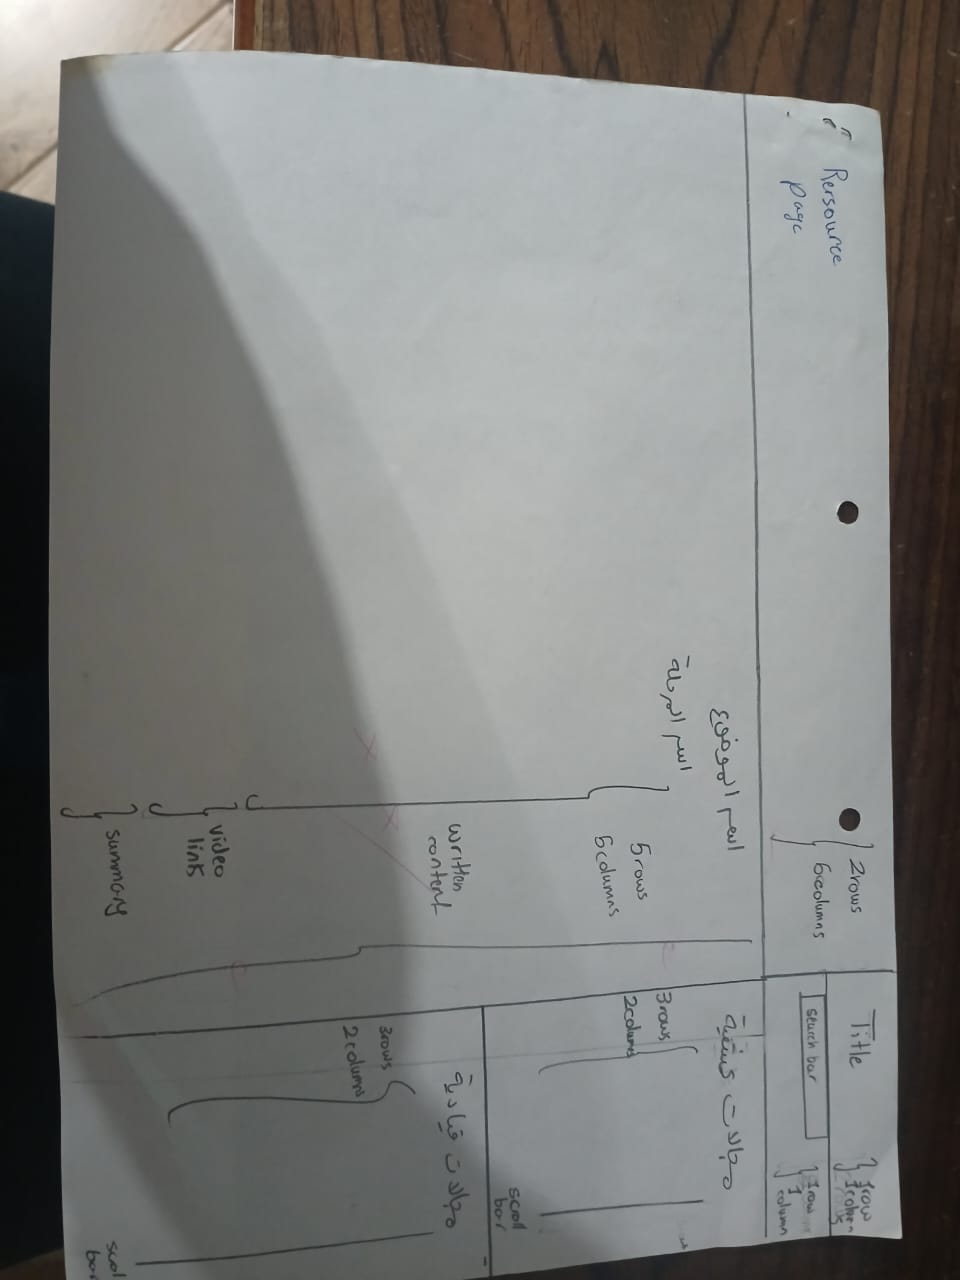 Rersource
page
2rows
6columns
Title
1row
search bar
1row
1
column
اسم الموضوع
اسم المرحلة
5rows
6columns
written
content
video
link
summary
مجالات كشفية
3rows
2columns
scroll
bar
مجالات قيادية
3rows
2columns
scrol
bar